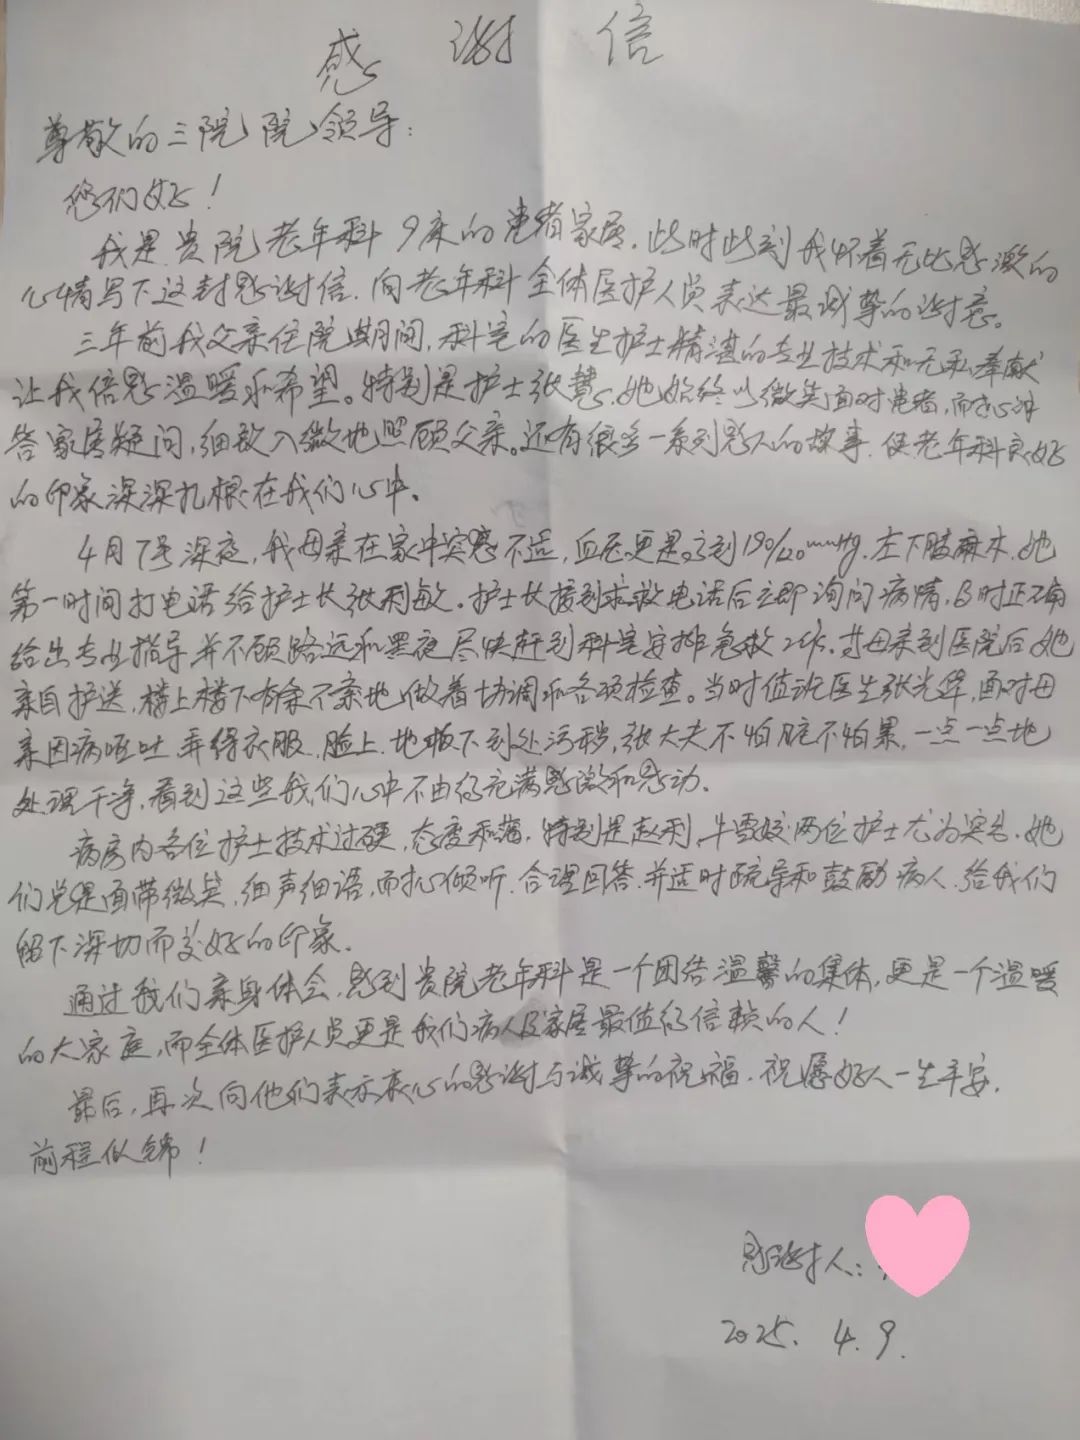 感谢信
尊敬的三院院领导：
您们好！
我是贵院老年科9床的患者家属，此时此刻我怀着无比感激的
心情写下这封感谢信，向老年科全体医护人员表达最诚挚的谢意。
三年前我父亲住院期间，科室的医生护士精湛的专业技术和无私奉献
让我倍感温暖和希望。特别是护士张慧，她始终以微笑面对患者，耐心解
答家属疑问，细致入微地照顾父亲。还有很多一系列感人的故事，使老年科良好
的印象深深扎根在我们心中。
4月7号深夜，我母亲在家中突感不适，血压更是达到190/120mmHg，左下肢麻木，她
第一时间打电话给护士长张利敏。护士长接到求救电话后立即询问病情，及时正确
给出专业指导并不顾路远和黑夜尽快赶到科室安排急救工作。等母亲到医院后，她
亲自护送，楼上楼下有条不紊地做着协调和各项检查。当时值班医生张光华，面对母
亲因病呕吐弄得衣服、脸上、地板下到处污秽，张大夫不怕脏不怕累，一点一点地
处理干净，看到这些我们心中不由得充满感激和感动。
病房内各位护士技术过硬，态度和蔼，特别是赵利，牛雪姣两位护士尤为突出，她
们总是面带微笑，细声细语，耐心倾听，合理回答，并适时疏导和鼓励病人，给我们
留下深切而美好的印象。
通过我们亲身体会，感到贵院老年科是一个团结温馨的集体，更是一个温暖
的大家庭，而全体医护人员更是我们病人及家属最值得信赖的人！
最后，再次向他们表示衷心的感谢与诚挚的祝福，祝愿好人一生平安，
前程似锦！
感谢人：
2025.4.9.